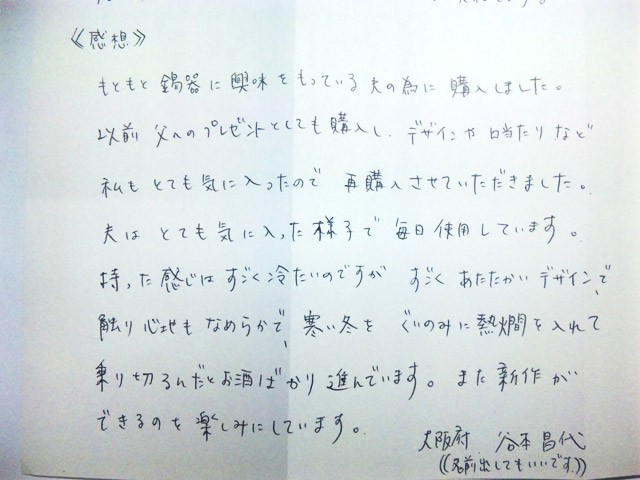 《感想》
もともと錫器に興味をもっている夫の為に購入しました。
以前 父へのプレゼントとしても購入し、デザインや口当たりなど
私もとても気に入ったので 再購入させていただきました。
夫はとても気に入った様子で毎日使用しています。
持った感じはすごく冷たいのですが すごくあたたかいデザインで、
触り心地もなめらかで、寒い冬をぐいのみに熱燗を入れて
乗り切るんだとお酒ばかり進んでいます。また新作が
できるのを楽しみにしています。
大阪府 谷本昌代
((名前出してもいいです。))